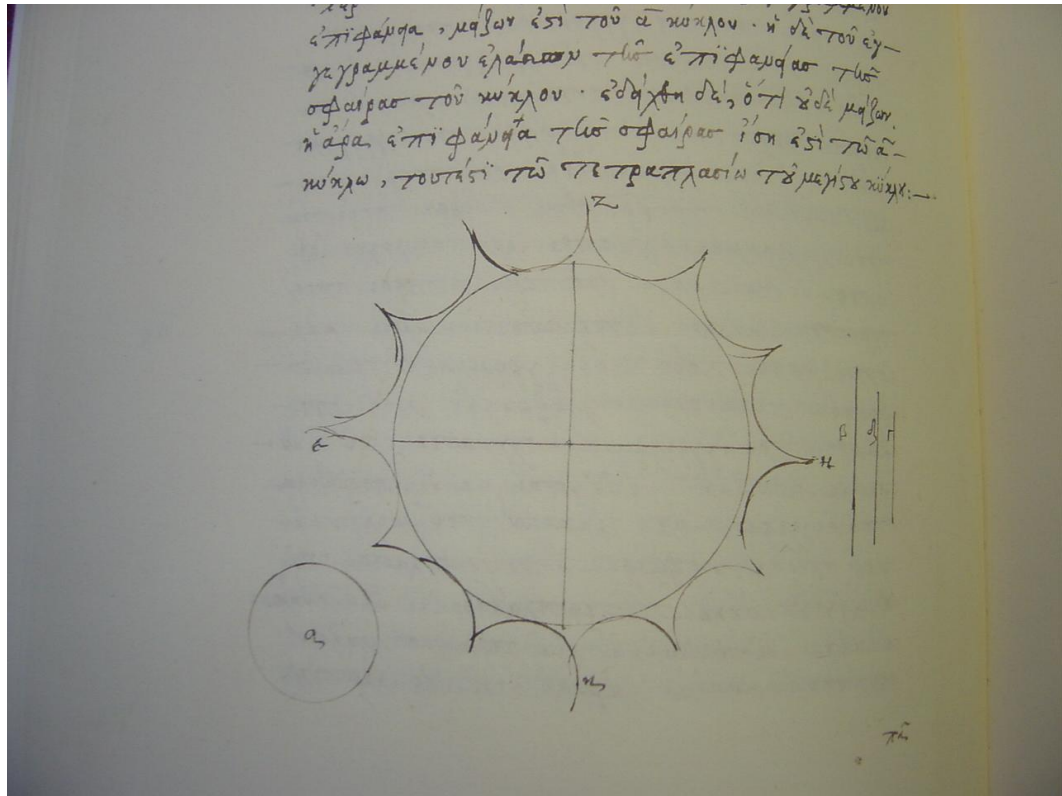 ἐπιφάνεια, μείζων ἐστὶ τοῦ α κύκλου. ἡ δὲ τοῦ ἐγ-
γεγραμμένου ἐλάσσων τῆς ἐπιφάνείας τῆς
σφαίρας τοῦ κύκλου. ἐδείχθη δὲ, ὅτι οὐδὲ μείζων.
ἡ ἄρα ἐπιφάνεια τῆς σφαίρας ἴση ἐστὶ τῶ α-
κύκλω, τουτέστι τῶ τετραπλασίω τοῦ μεγίστου κύκλου:—
Ζ
Β Δ Γ
Ε
Η
α